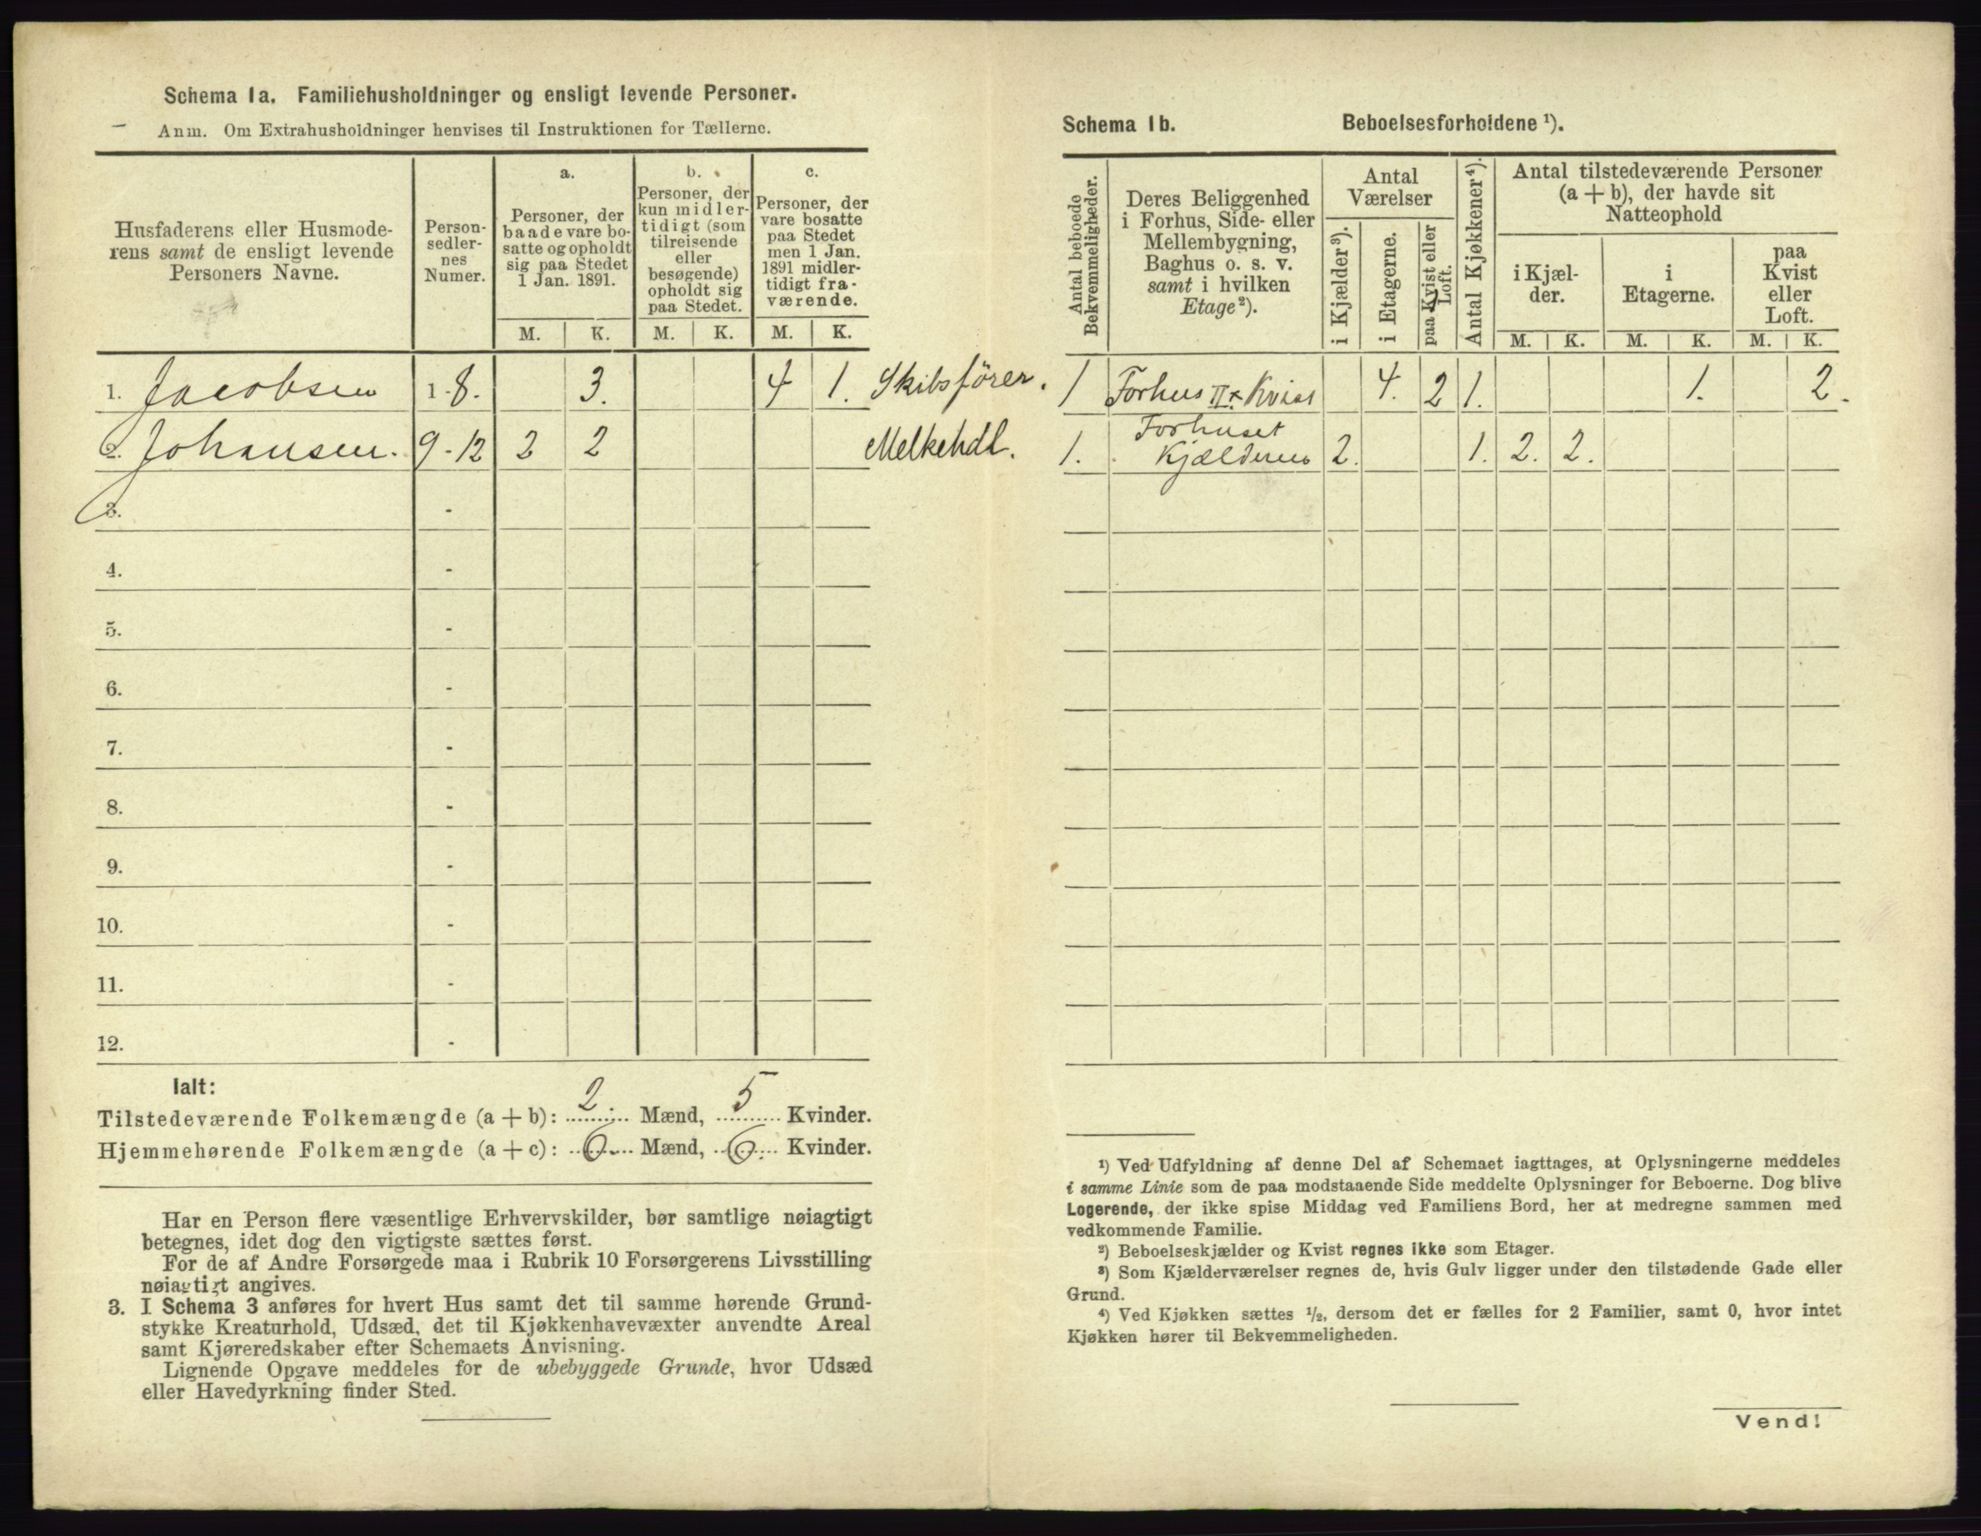 Schema 1a. Familiehusholdninger og ensligt levende Personer.
Anm. Om Extrahusholdninger henvises til Instruktionen for Tællerne.
Husfaderens eller Husmode-
rens samt de ensligt levende
Personers Navne.
Person-
sedler-
nes
Numer.
a.
Personer, der
baade vare bo-
satte og opholdt
sig paa Stedet
1 Jan. 1891.
b.
Personer, der
kun midler-
tidigt (som
tilreisende
eller
besøgende)
opholdt sig
paa Stedet.
c.
Personer, der
vare bosatte
paa Stedet
men 1 Jan.
1891 midler-
tidigt fra-
værende.
M. K. M. K. M. K.
1. Jacobsen 1-8. 3. 4 1. Skibsförer.
2. Johansen. 9-12 2 2 Melkehdl.
3. -
4. -
5. -
6. -
7. -
8. -
9. -
10. -
11. -
12. -
Ialt:
Tilstedeværende Folkemængde (a + b): 2 Mænd, 5 Kvinder.
Hjemmehørende Folkemængde (a + c): 6 Mænd, 6. Kvinder.
Har en Person flere væsentlige Erhvervskilder, bør samtlige nøiagtigt
betegnes, idet dog den vigtigste sættes først.
For de af Andre Forsørgede maa i Rubrik 10 Forsørgerens Livsstilling
nøiagtigt angives.
3. I Schema 3 anføres for hvert Hus samt det til samme hørende Grund-
stykke Kreaturhold, Udsæd, det til Kjøkkenhavevæxter anvendte Areal
samt Kjøreredskaber efter Schemaets Anvisning.
Lignende Opgave meddeles for de ubebyggede Grunde, hvor Udsæd
eller Havedyrkning finder Sted.
Schema 1b. Beboelsesforholdene ¹).
Antal beboede
Bekvemmeligheder.
Deres Beliggenhed
i Forhus, Side- eller
Mellembygning,
Baghus o. s. v.
samt i hvilken
Etage²).
Antal
Værelser
i Kjælder³).
i Etagerne.
paa Kvist eller
Loft.
Antal Kjøkkener⁴).
Antal tilstedeværende Personer
(a + b), der havde sit
Natteophold
i Kjæl-
der.
i
Etagerne.
paa
Kvist
eller
Loft.
M. K. M. K. M. K.
1 Forhus II x Kvist 4. 2 1. 1. 2.
1. Forhuset
Kjælderen 2. 1. 2. 2.
¹) Ved Udfyldning af denne Del af Schemaet iagttages, at Oplysningerne meddeles
i samme Linie som de paa modstaaende Side meddelte Oplysninger for Beboerne. Dog blive
Logerende, der ikke spise Middag ved Familiens Bord, her at medregne sammen med
vedkommende Familie.
²) Beboelseskjælder og Kvist regnes ikke som Etager.
³) Som Kjælderværelser regnes de, hvis Gulv ligger under den tilstødende Gade eller
Grund.
⁴) Ved Kjøkken sættes ½, dersom det er fælles for 2 Familier, samt 0, hvor intet
Kjøkken hører til Bekvemmeligheden.
Vend!